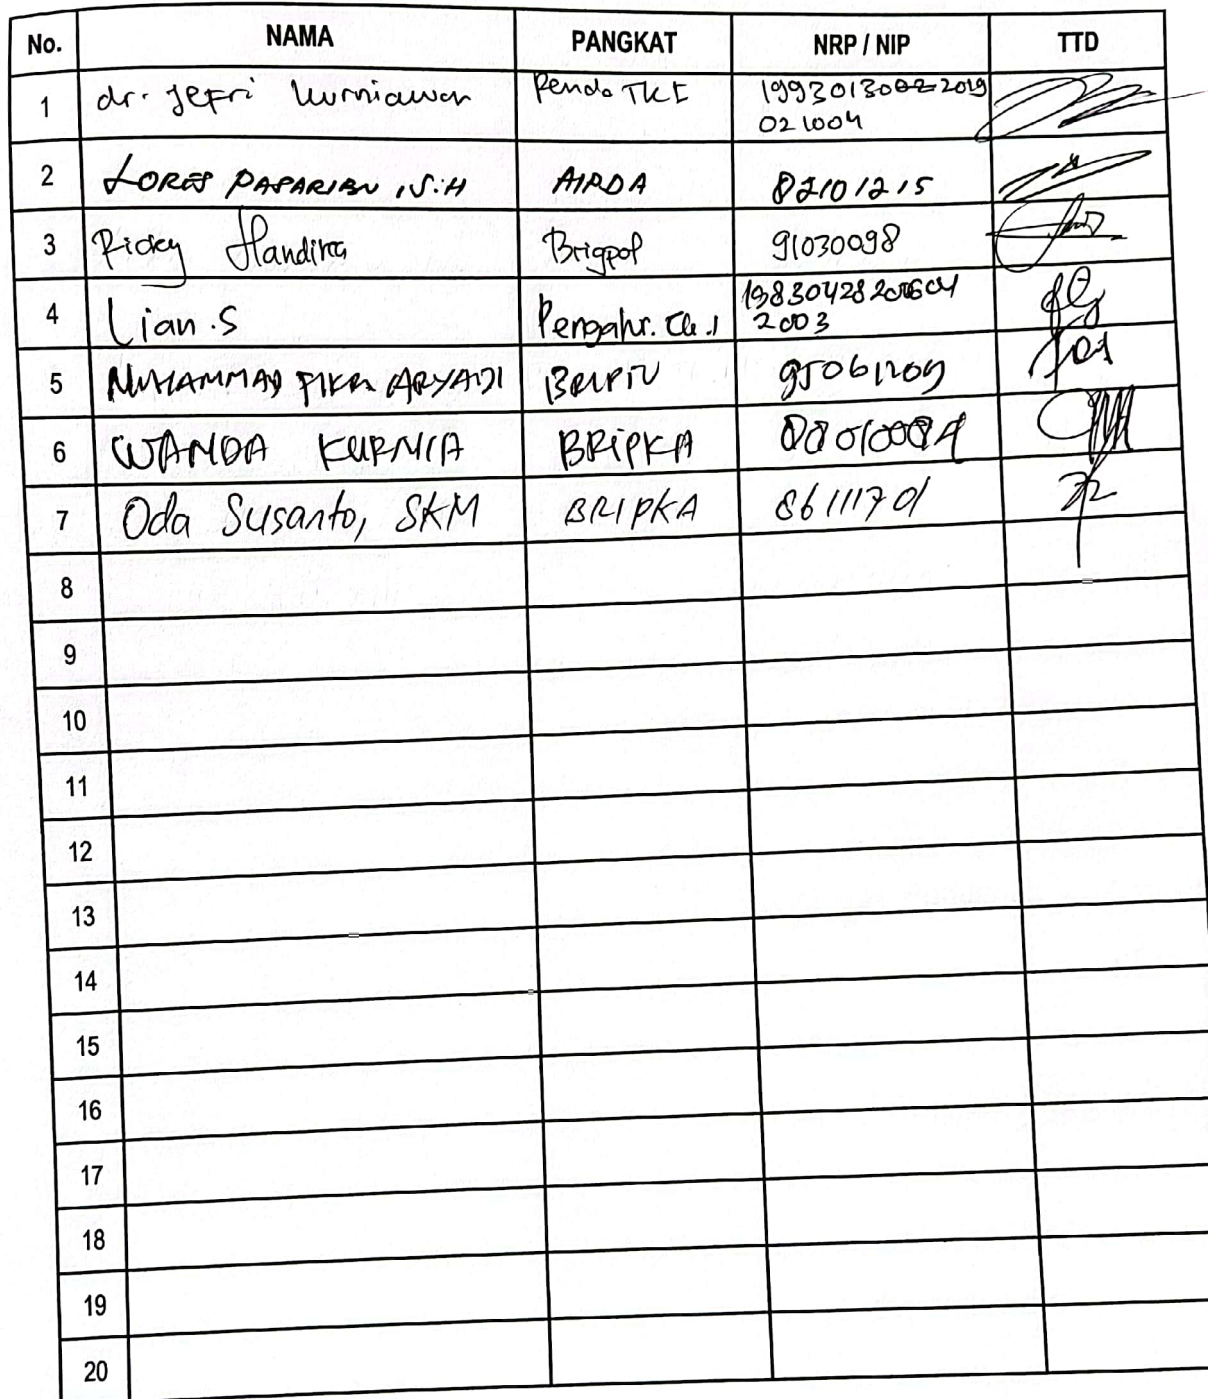 No. NAMA PANGKAT NRP / NIP TTD
1 dr. Jefri Kurniawan Penda TK I 199301302019
021004
2 LORES PAPARIAN, S.H AIPDA 82101215
3 Ricky Handika Brigpol 91030098
4 Lian.S Pengahr. Tk.1 19830428200604
2003
5 MUHAMMAD FIKRI ARYADI BRIPTU 95061209
6 WANDA KURNIA BRIPKA
7 Oda Susanto, SKM BRIPKA 86111701
8
9
10
11
12
13
14
15
16
17
18
19
20